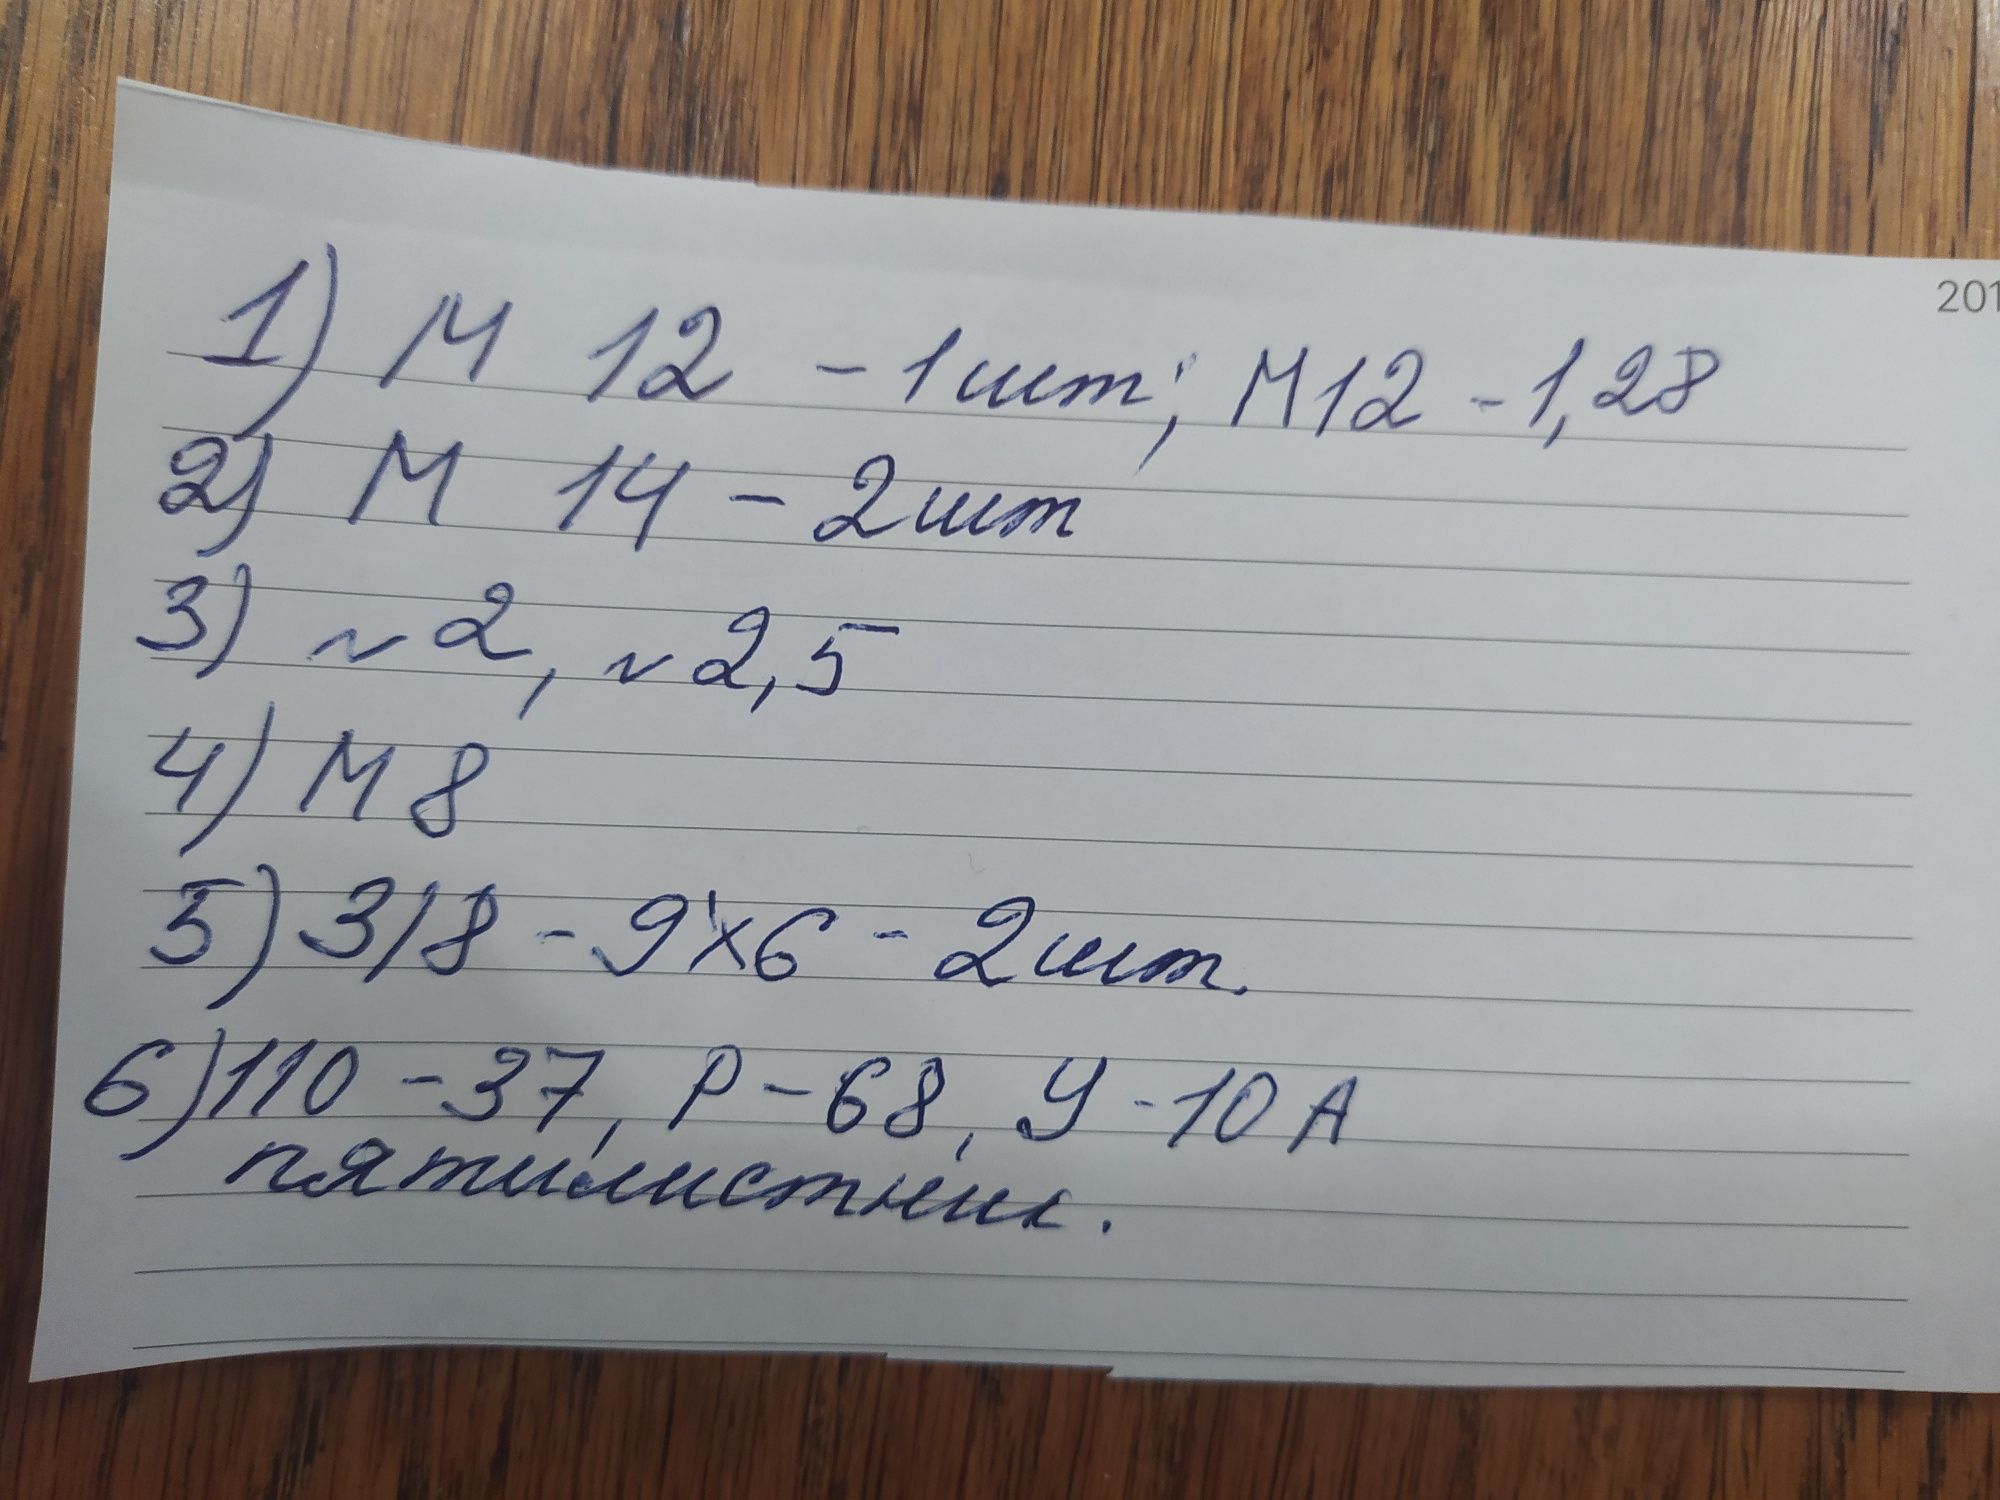 201
1) М 12 - 1шт; М12 - 1,28
2) М 14 - 2шт
3) ~2, ~2,5
4) М 8
5) 3/8 - 9х6 - 2шт.
6) 110 - 37, Р - 68, У - 10 А
пятилистник.